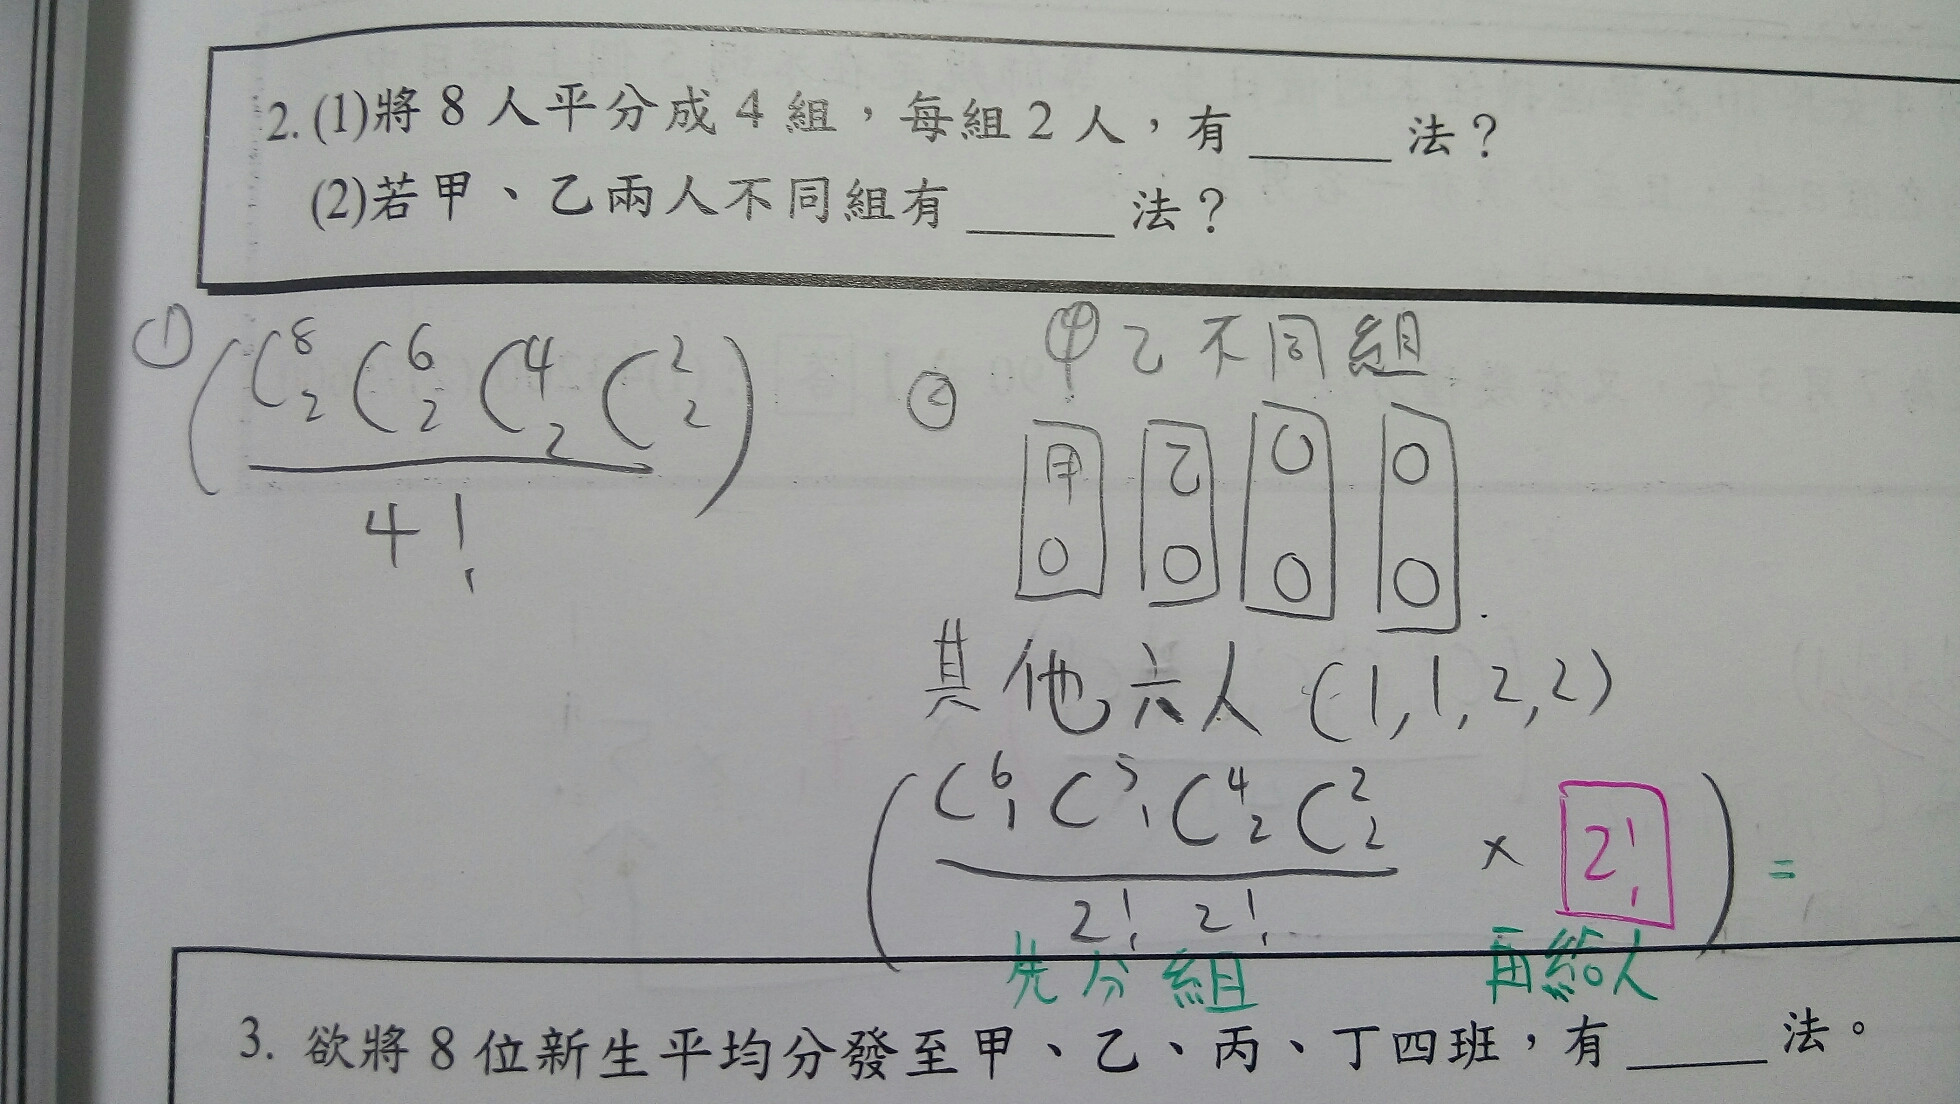 2. (1)將 8 人平分成 4 組，每組 2 人，有 _____ 法？
(2)若甲、乙兩人不同組有 _____ 法？
① ( C⁸₂ C⁶₂ C⁴₂ C²₂ / 4! )
② 甲乙不同組
甲 乙 ○ ○
○ ○ ○ ○
其他六人 (1,1,2,2)
( C⁶₁ C⁵₁ C⁴₂ C²₂ / 2! 2! × 2! ) =
先分組 再給人
3. 欲將 8 位新生平均分發至甲、乙、丙、丁四班，有 _____ 法。